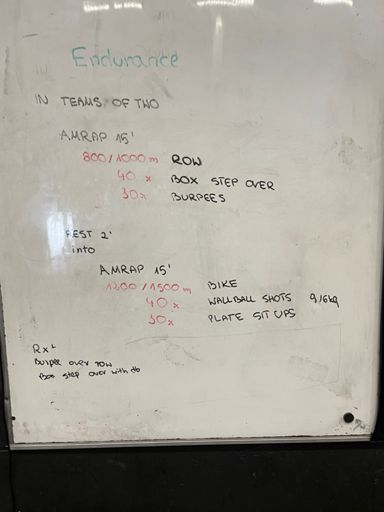 Endurance
IN TEAMS OF TWO
AMRAP 15'
800/1000m ROW
40 x BOX STEP OVER
30x BURPEES
REST 2'
into
AMRAP 15'
1200/1500 m BIKE
40x WALLBALL SHOTS 9/6kg
30x PLATE SIT UPS
Rx+
Burpee over row
Box step over with db